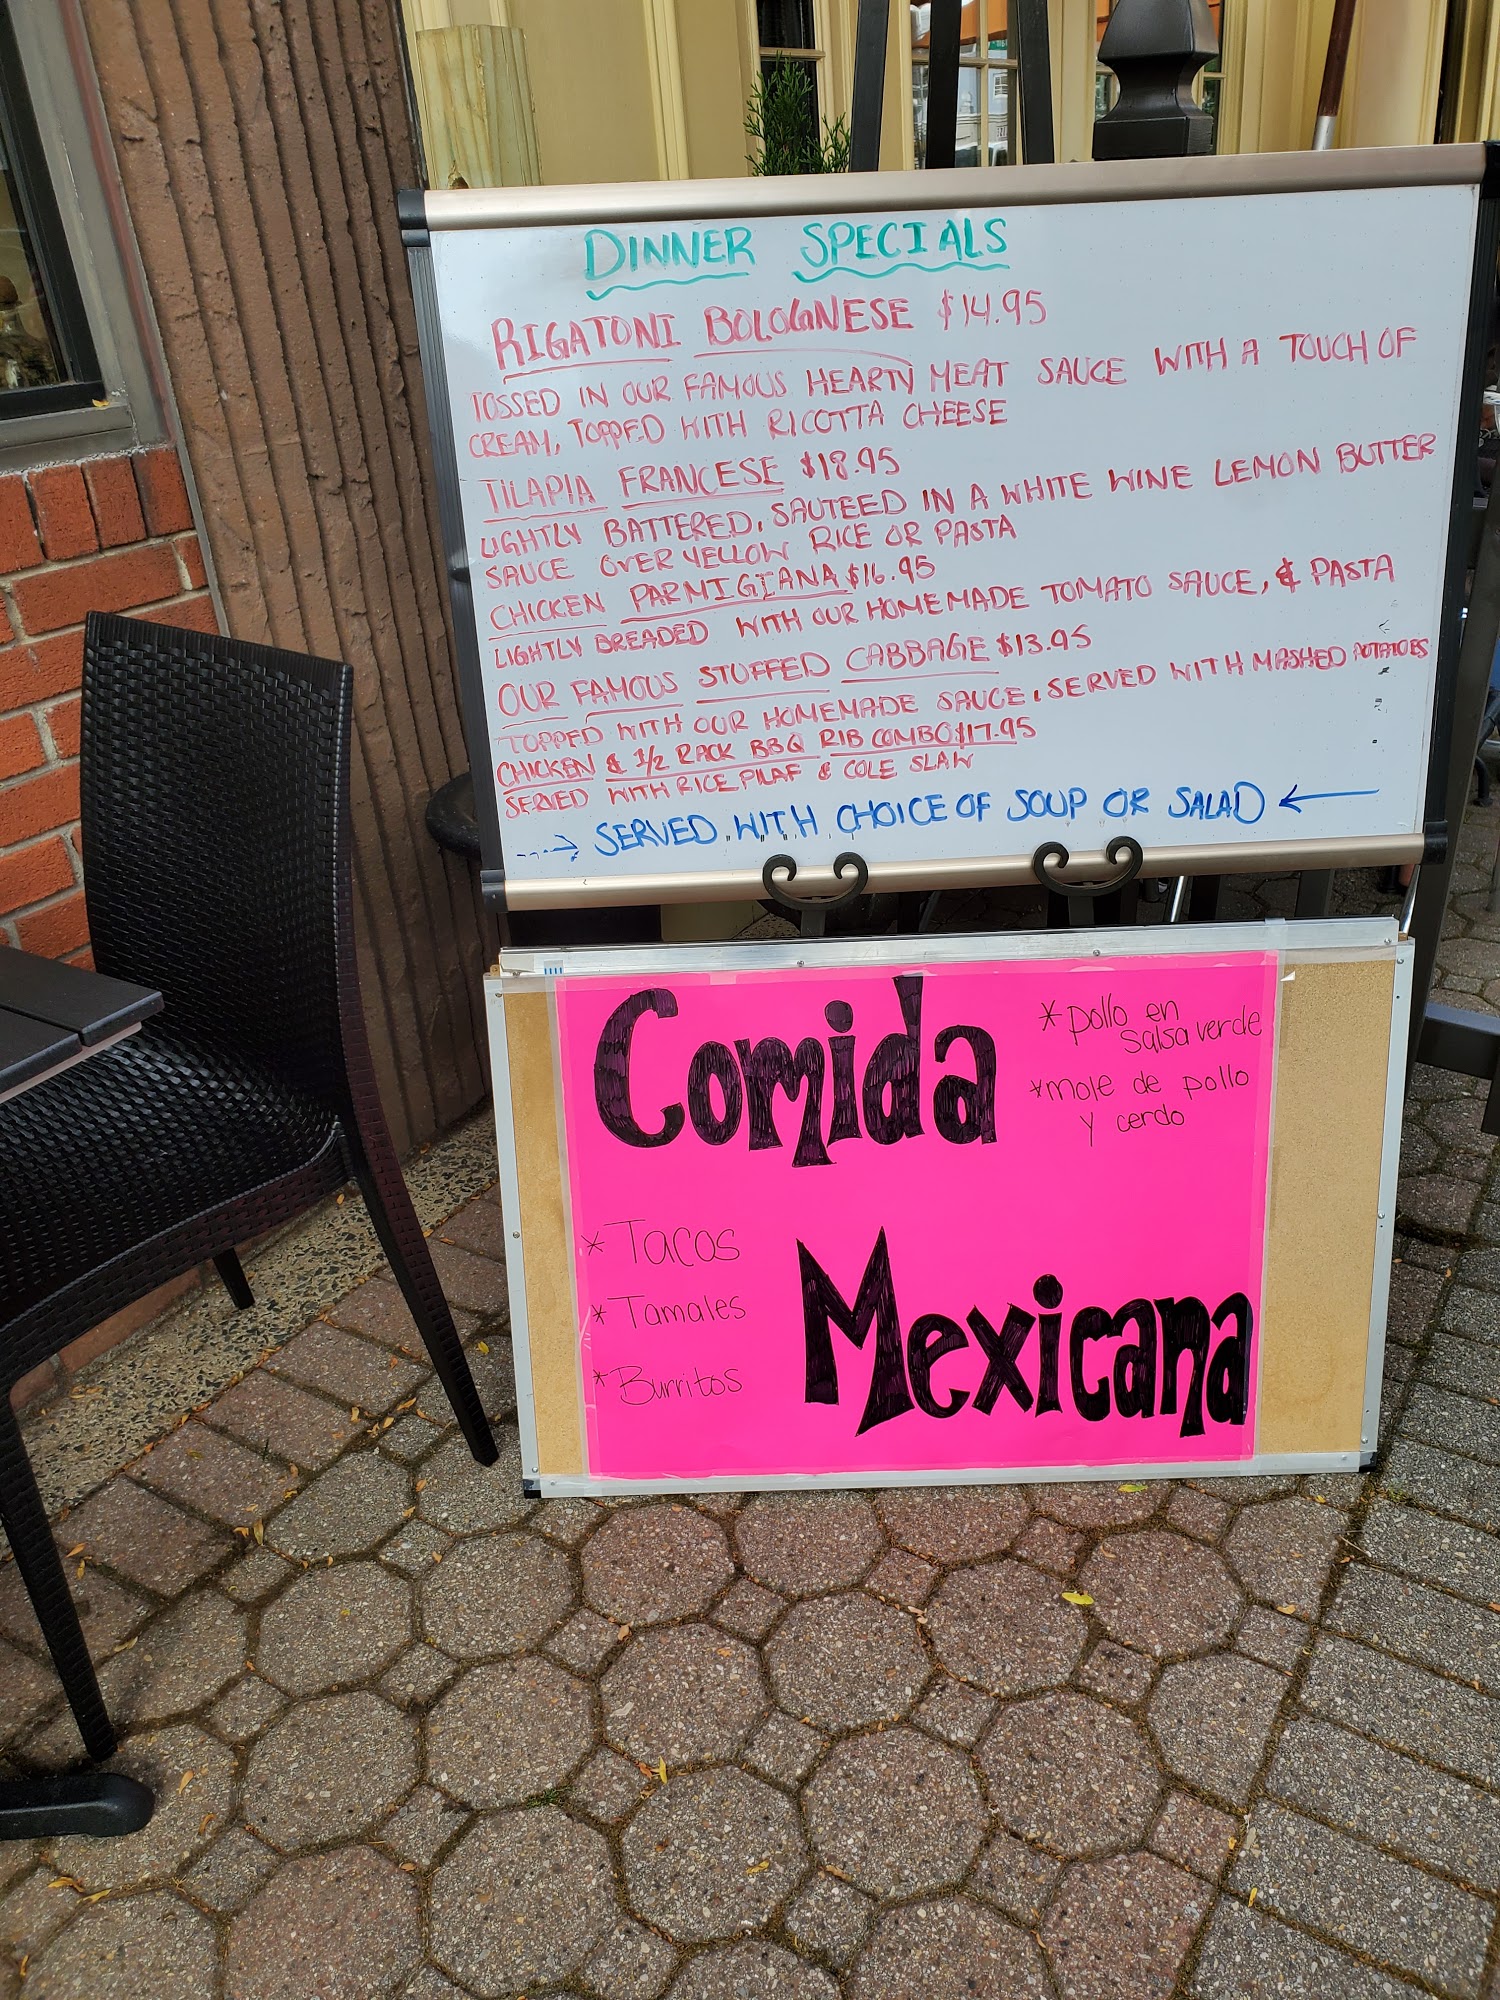 DINNER SPECIALS
RIGATONI BOLOGNESE $14.95
TOSSED IN OUR FAMOUS HEARTY MEAT SAUCE WITH A TOUCH OF
CREAM, TOPPED WITH RICOTTA CHEESE
TILAPIA FRANCESE $18.95
LIGHTLY BATTERED, SAUTEED IN A WHITE WINE LEMON BUTTER
SAUCE OVER YELLOW RICE OR PASTA
CHICKEN PARMIGIANA $16.95
LIGHTLY BREADED WITH OUR HOMEMADE TOMATO SAUCE, & PASTA
OUR FAMOUS STUFFED CABBAGE $13.95
TOPPED WITH OUR HOMEMADE SAUCE, SERVED WITH MASHED POTATOES
CHICKEN & 1/2 RACK BBQ RIB COMBO $17.95
SERVED WITH RICE PILAF & COLE SLAW
SERVED WITH CHOICE OF SOUP OR SALAD
Comida
* pollo en
salsa verde
* mole de pollo
y cerdo
* Tacos
* Tamales
* Burritos
Mexicana